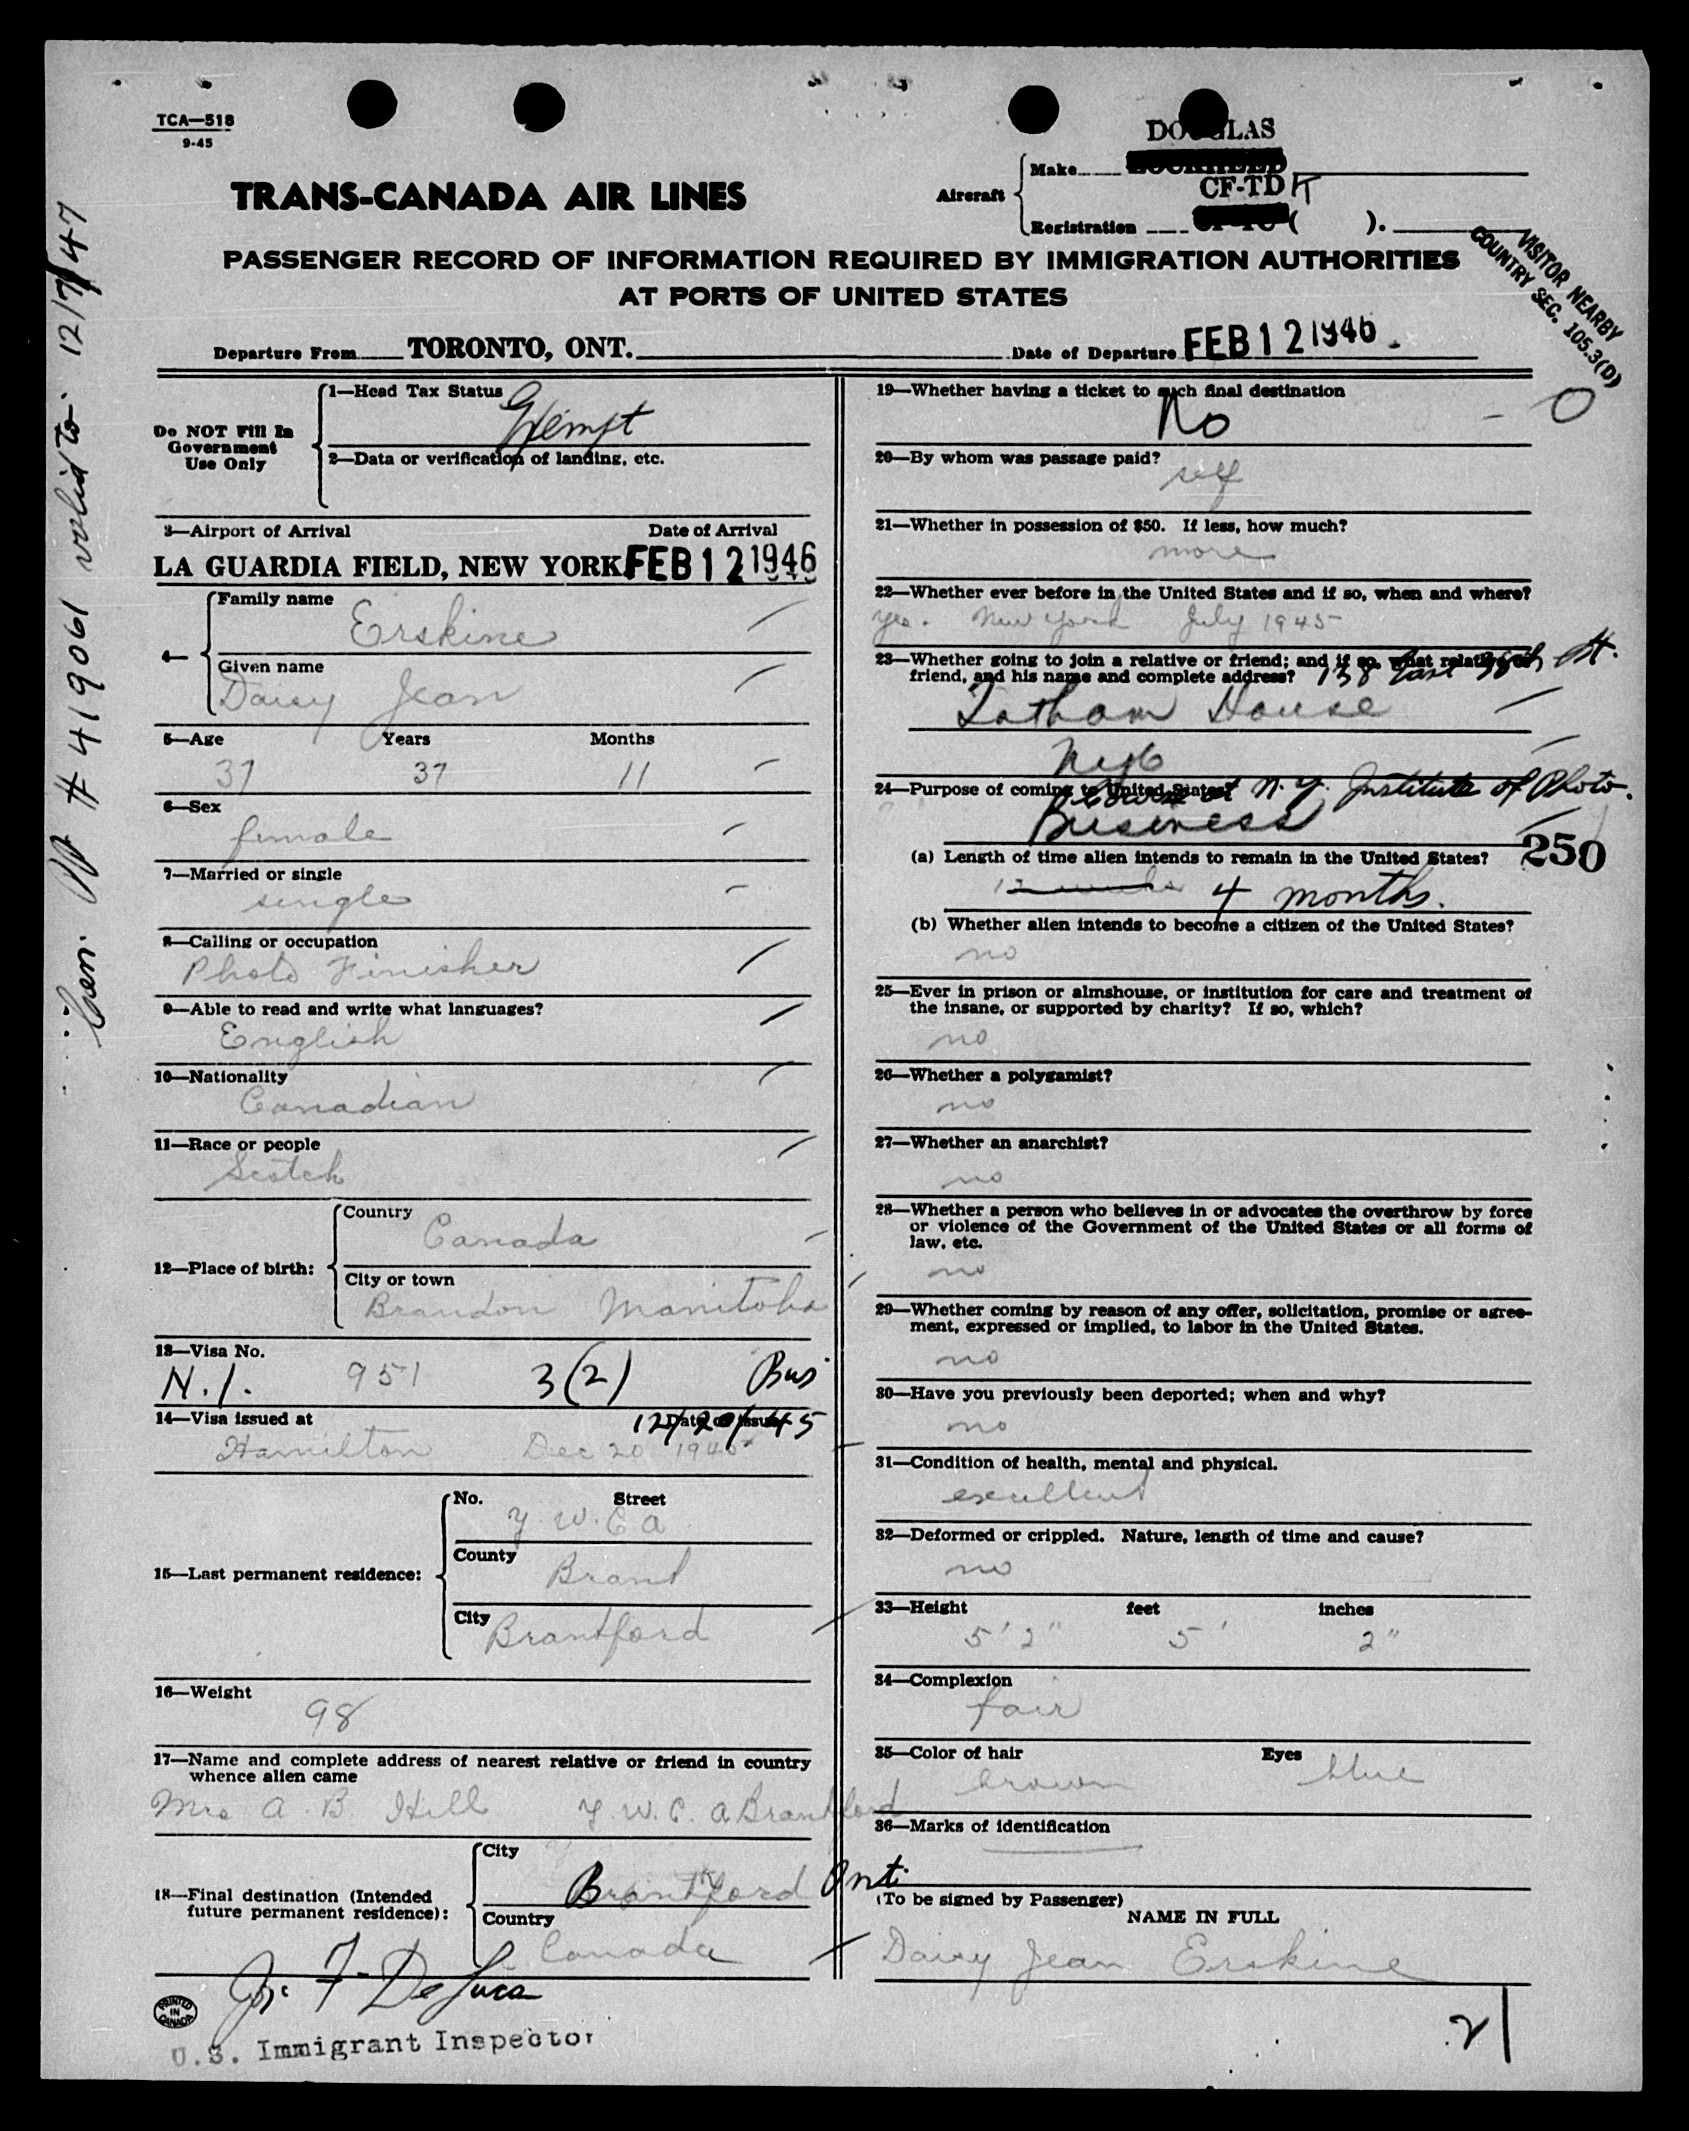 TCA—518
9-45
DOUGLAS
Aircraft
Make
CF-TDK
Registration ( ).
TRANS-CANADA AIR LINES
PASSENGER RECORD OF INFORMATION REQUIRED BY IMMIGRATION AUTHORITIES
AT PORTS OF UNITED STATES
VISITOR NEARBY
COUNTRY SEC. 105.3(D)
Departure From TORONTO, ONT.
Date of Departure FEB 12 1946
# 419061 valid to 12/7/47
Do NOT Fill In
Government
Use Only
1—Head Tax Status
Exempt
2—Data or verification of landing, etc.
3—Airport of Arrival Date of Arrival
LA GUARDIA FIELD, NEW YORK FEB 12 1946
4—
Family name
Erskine
Given name
Daisy Jean
5—Age Years Months
37 37 11
6—Sex
female
7—Married or single
single
8—Calling or occupation
Photo Finisher
9—Able to read and write what languages?
English
10—Nationality
Canadian
11—Race or people
Scotch
12—Place of birth:
Country
Canada
City or town
Brandon Manitoba
13—Visa No.
N.I. 951 3(2) Bus
14—Visa issued at Date of issue
12/20/45
Hamilton Dec 20 1945
15—Last permanent residence:
No. Street
Y.W.C.A
County
Brant
City
Brantford
16—Weight
98
17—Name and complete address of nearest relative or friend in country
whence alien came
Mrs A. B. Hill Y.W.C.A Brantford
18—Final destination (Intended
future permanent residence):
City
Brantford Ont.
Country
Canada
Jos. F. DeLuca
U.S. Immigrant Inspector
PRINTED
IN
CANADA
19—Whether having a ticket to such final destination
No - 0
20—By whom was passage paid?
self
21—Whether in possession of $50. If less, how much?
more
22—Whether ever before in the United States and if so, when and where?
yes. New York July 1945
23—Whether going to join a relative or friend; and if so, what relative or
friend, and his name and complete address? 138 East 38th St.
Latham House
NYC
24—Purpose of coming to United States?
at N.Y. Institute of Photo.
Business
250
(a) Length of time alien intends to remain in the United States?
12 weeks 4 months.
(b) Whether alien intends to become a citizen of the United States?
no
25—Ever in prison or almshouse, or institution for care and treatment of
the insane, or supported by charity? If so, which?
no
26—Whether a polygamist?
no
27—Whether an anarchist?
no
28—Whether a person who believes in or advocates the overthrow by force
or violence of the Government of the United States or all forms of
law, etc.
no
29—Whether coming by reason of any offer, solicitation, promise or agree-
ment, expressed or implied, to labor in the United States.
no
30—Have you previously been deported; when and why?
no
31—Condition of health, mental and physical.
excellent
32—Deformed or crippled. Nature, length of time and cause?
no
33—Height feet inches
5'2" 5' 2"
34—Complexion
fair
35—Color of hair Eyes
brown blue
36—Marks of identification
(To be signed by Passenger)
NAME IN FULL
Daisy Jean Erskine
21